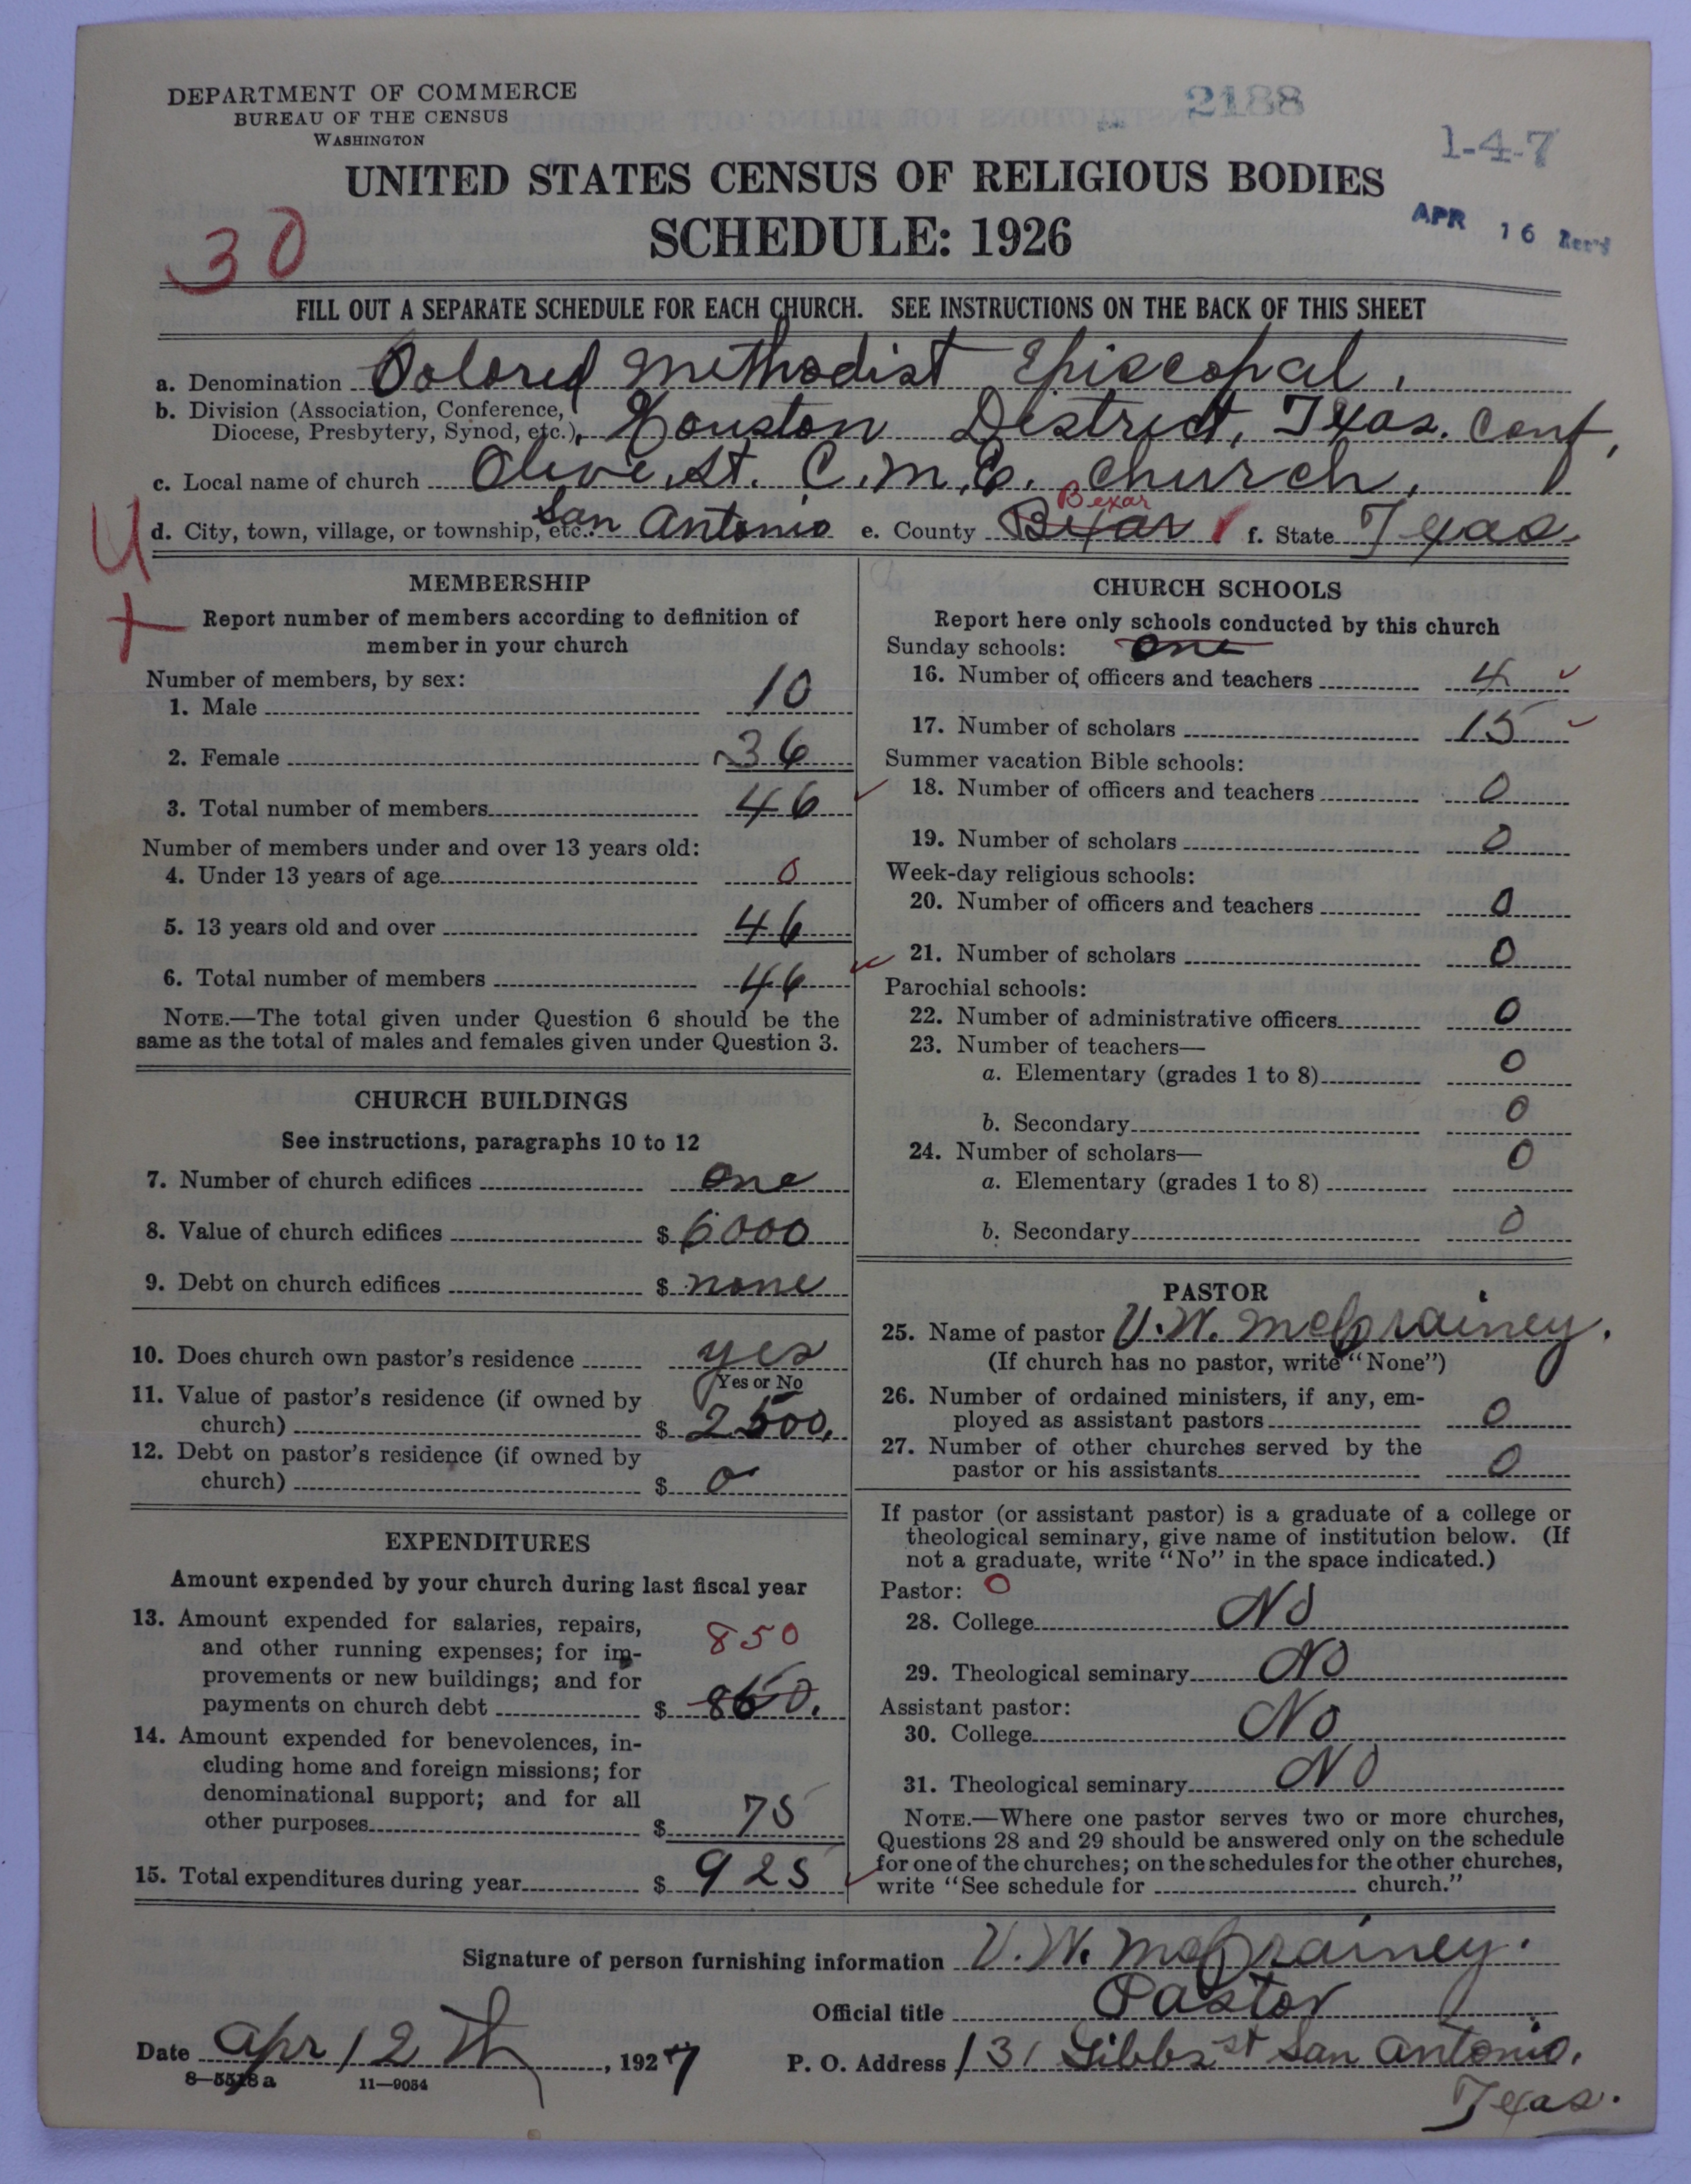 DEPARTMENT OF COMMERCE
BUREAU OF THE CENSUS
WASHINGTON
2188
1-4-7
UNITED STATES CENSUS OF RELIGIOUS BODIES
SCHEDULE: 1926
APR 16 Rec'd
30
FILL OUT A SEPARATE SCHEDULE FOR EACH CHURCH. SEE INSTRUCTIONS ON THE BACK OF THIS SHEET
a. Denomination Colored Methodist Episcopal,
b. Division (Association, Conference,
Diocese, Presbytery, Synod, etc.), Houston District, Texas. Conf,
c. Local name of church Olive St. C.M.E. Church,
d. City, town, village, or township, etc. San Antonio e. County Bexar Bexar f. State Texas.
U
+
MEMBERSHIP
Report number of members according to definition of
member in your church
Number of members, by sex:
1. Male 10
2. Female 36
3. Total number of members 46
Number of members under and over 13 years old:
4. Under 13 years of age 0
5. 13 years old and over 46
6. Total number of members 46
NOTE.—The total given under Question 6 should be the
same as the total of males and females given under Question 3.
CHURCH BUILDINGS
See instructions, paragraphs 10 to 12
7. Number of church edifices One
8. Value of church edifices $ 6000
9. Debt on church edifices $ none
10. Does church own pastor's residence yes
Yes or No
11. Value of pastor's residence (if owned by
church) $ 2500.
12. Debt on pastor's residence (if owned by
church) $ 0
EXPENDITURES
Amount expended by your church during last fiscal year
13. Amount expended for salaries, repairs,
and other running expenses; for im-
850
provements or new buildings; and for
payments on church debt $ 860.
14. Amount expended for benevolences, in-
cluding home and foreign missions; for
denominational support; and for all
other purposes $ 75
15. Total expenditures during year $ 925
CHURCH SCHOOLS
Report here only schools conducted by this church
Sunday schools: One
16. Number of officers and teachers 4
17. Number of scholars 15
Summer vacation Bible schools:
18. Number of officers and teachers 0
19. Number of scholars 0
Week-day religious schools:
20. Number of officers and teachers 0
21. Number of scholars 0
Parochial schools:
22. Number of administrative officers 0
23. Number of teachers—
a. Elementary (grades 1 to 8) 0
b. Secondary 0
24. Number of scholars—
a. Elementary (grades 1 to 8) 0
b. Secondary 0
PASTOR
25. Name of pastor V.W. McGrainey.
(If church has no pastor, write "None")
26. Number of ordained ministers, if any, em-
ployed as assistant pastors 0
27. Number of other churches served by the
pastor or his assistants 0
If pastor (or assistant pastor) is a graduate of a college or
theological seminary, give name of institution below. (If
not a graduate, write "No" in the space indicated.)
Pastor: 0
28. College No
29. Theological seminary No
Assistant pastor:
30. College No
31. Theological seminary No
NOTE.—Where one pastor serves two or more churches,
Questions 28 and 29 should be answered only on the schedule
for one of the churches; on the schedules for the other churches,
write "See schedule for church."
Signature of person furnishing information V.W. McGrainey.
Official title Pastor
Date Apr 12th, 1927
P. O. Address 131 Gibbs st San Antonio.
Texas.
8—5518a 11—9054